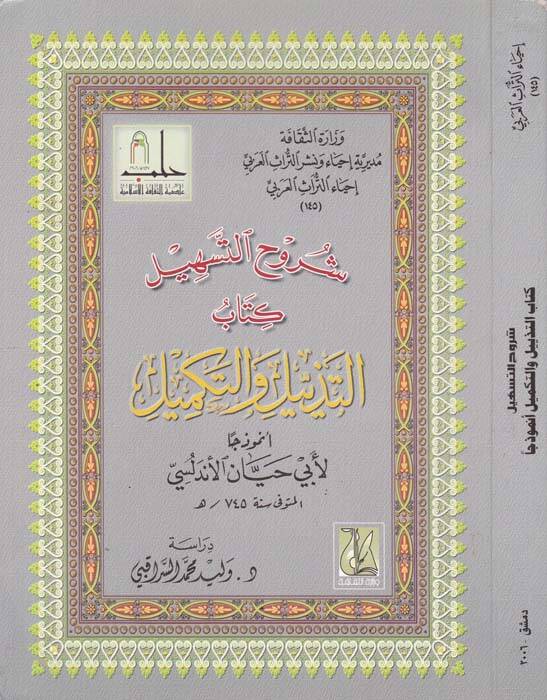 وزارة الثقافة
مديرية إحياء ونشر التراث العربي
إحياء التراث العربي
(١٤٥)
حلب
عاصمة الثقافة الإسلامية
شروح التسهيل
كتابُ
التذييل والتكميل
أنموذجاً
لأبي حيان الأندلسي
المتوفى سنة ٧٤٥ هـ
دراسة
د. وليد محمد السراقبي
وزارة الثقافة
إحياء التراث العربي
(١٤٥)
شروح التسهيل
كتاب التذييل والتكميل أنموذجاً
دمشق - ٢٠٠٦